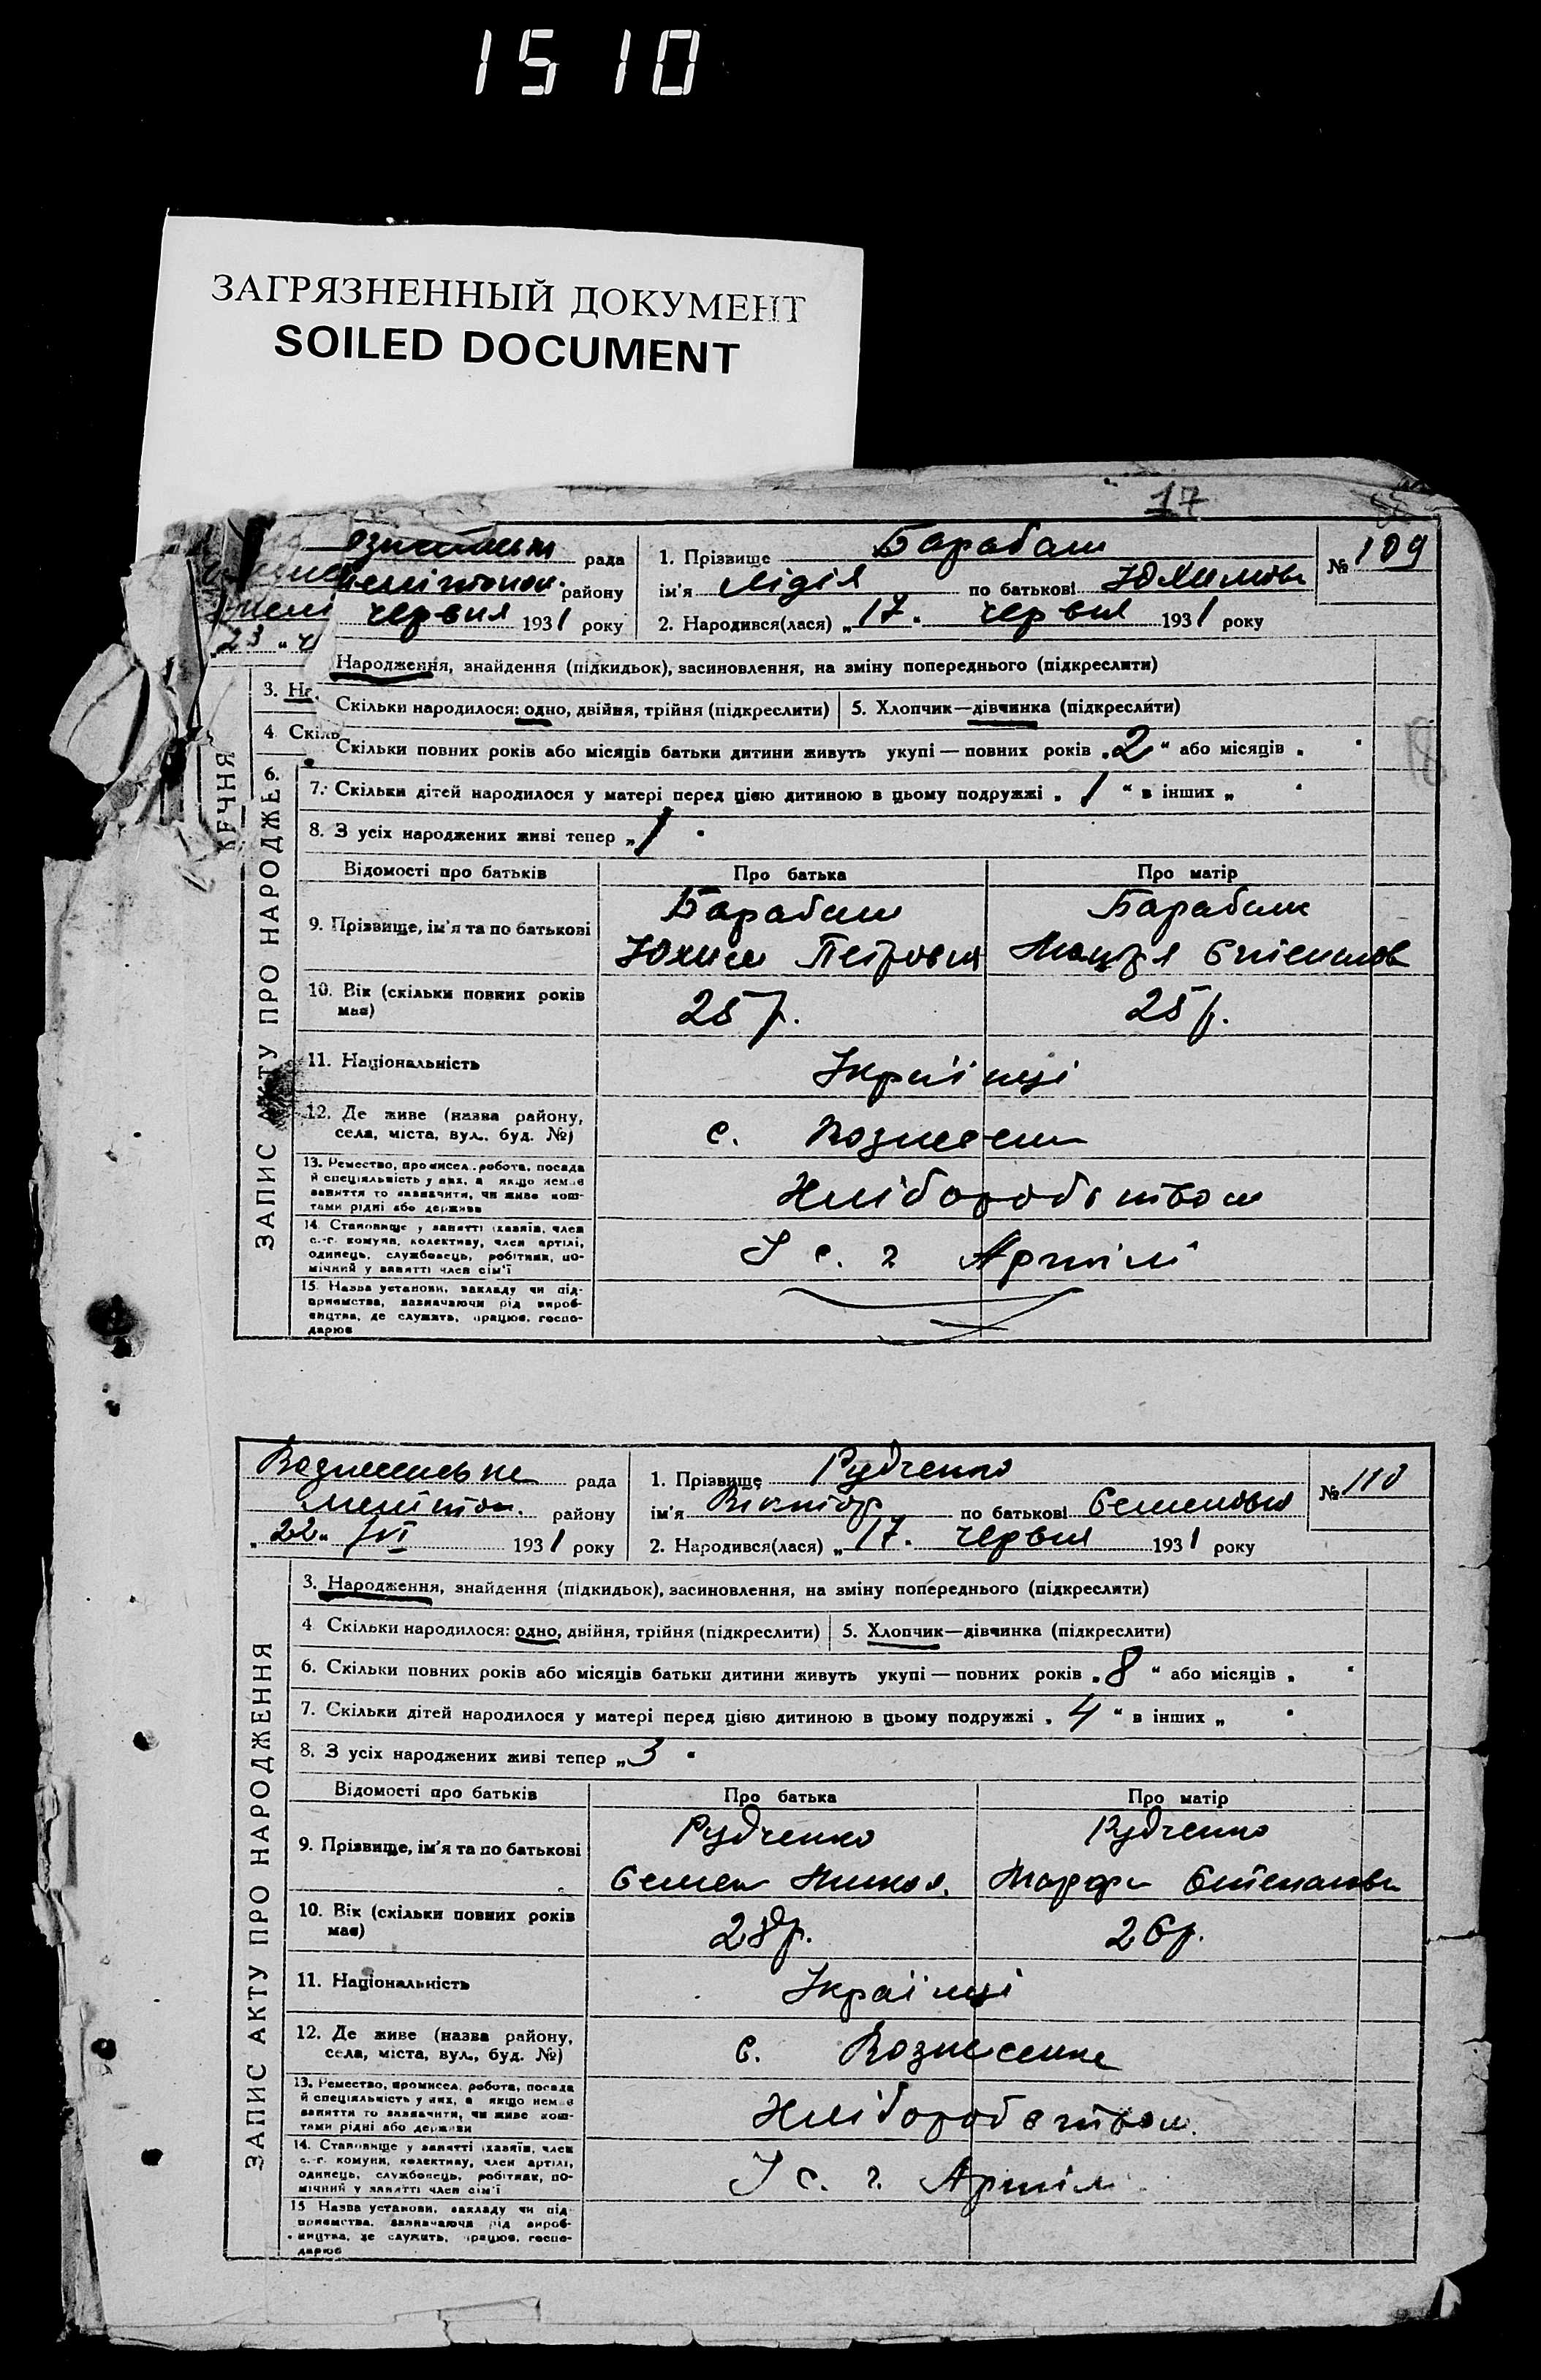 1510
ЗАГРЯЗНЕННЫЙ ДОКУМЕНТ
SOILED DOCUMENT
17
рада
району
червня 1931 року
23 „ч
1. Прізвище Барабаш
ім'я Лідія по батькові Юхимовн
2. Народився(лася) „17. червня 1931 року
№ 109
Народження, знайдення (підкидьок), засиновлення, на зміну попереднього (підкреслити)
3. На
Скільки народилося: одно, двійня, трійня (підкреслити) 5. Хлопчик—дівчинка (підкреслити)
4 Скіль
Скільки повних років або місяців батьки дитини живуть укупі — повних років „2“ або місяців „
6.
7. Скільки дітей народилося у матері перед цією дитиною в цьому подружжі „1“ в інших „
8. З усіх народжених живі тепер „1
Відомості про батьків Про батька Про матір
9. Прізвище, ім'я та по батькові
Барабаш Барабаш
Юхим Петрович Степанов
10. Вік (скільки повних років має)
25 р. 25 р.
11. Національність
Українці
12. Де живе (назва району,
села, міста, вул., буд. №)
с. Вознесен
13. Ремество, промисел, робота, посада
й спеціяльність у них, а якщо немає
заняття то зазначити, чи живе кош-
тами рідні або держави
Хліборобством
14. Становище у занятті (хазяїн, член
с.-г. комуни, колективу, член артілі,
одинець, службовець, робітник, по-
мічний у занятті член сім'ї
У с. г Артілі
15. Назва установи, закладу чи під-
приємства, зазначаючи рід вироб-
ництва, де служить, працює, госпо-
дарює
ЗАПИС АКТУ ПРО НАРОДЖЕ
Вознесенське рада
Мелітоп. району
„22„ /VI 1931 року
1. Прізвище Рудченко
ім'я Віктор по батькові Семенович
2. Народився(лася) „17. червня 1931 року
№ 110
3. Народження, знайдення (підкидьок), засиновлення, на зміну попереднього (підкреслити)
4 Скільки народилося: одно, двійня, трійня (підкреслити) 5. Хлопчик—дівчинка (підкреслити)
6. Скільки повних років або місяців батьки дитини живуть укупі — повних років „8“ або місяців „
7. Скільки дітей народилося у матері перед цією дитиною в цьому подружжі „4“ в інших „
8. З усіх народжених живі тепер „3
Відомості про батьків Про батька Про матір
9. Прізвище, ім'я та по батькові
Рудченко Рудченко
Семен Микол. Марфа Степановн
10. Вік (скільки повних років має)
28р. 26р.
11. Національність
Українці
12. Де живе (назва району,
села, міста, вул., буд. №)
с. Вознесенка
13. Ремество, промисел, робота, посада
й спеціяльність у них, а якщо немає
заняття то зазначити, чи живе кош-
тами рідні або держави
Хліборобством.
14. Становище у занятті (хазяїн, член
с.-г. комуни, колективу, член артілі,
одинець, службовець, робітник, по-
мічний у занятті член сім'ї
У с. г. Артілі
15 Назва установи, закладу чи під-
приємства, зазначаючи рід вироб-
ництва, де служить, працює, госпо-
дарює
ЗАПИС АКТУ ПРО НАРОДЖЕННЯ